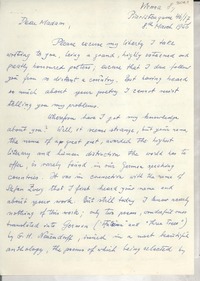 Vienna 8,
Piaristengasse 46/18
8th March 1950
Dear Madam,
Please excuse my liberty I take
writing to you, being a grand, highly esteemed and
partly honoured poetess, excuse that I dare follow
you from so distant a country. But having heard
so much about your poetry I cannot resist
telling you my problems.
Wherefrom have I got my knowledge
about you? Well, it seems strange, but you're even
the name of up great poet, awarded the highest
literary and human distinction the world has to
offer, is nearly found in our German speaking
countries. It was in connection with the name of
Stefan Zweig that I first heard your name and
about your work. But still today I know nearly
nothing of this work; only two poems, wonderful ones
translated into German ( and "Three Trees")
by G. H. , inside in a most beautiful
anthology, the poems of which being selected by